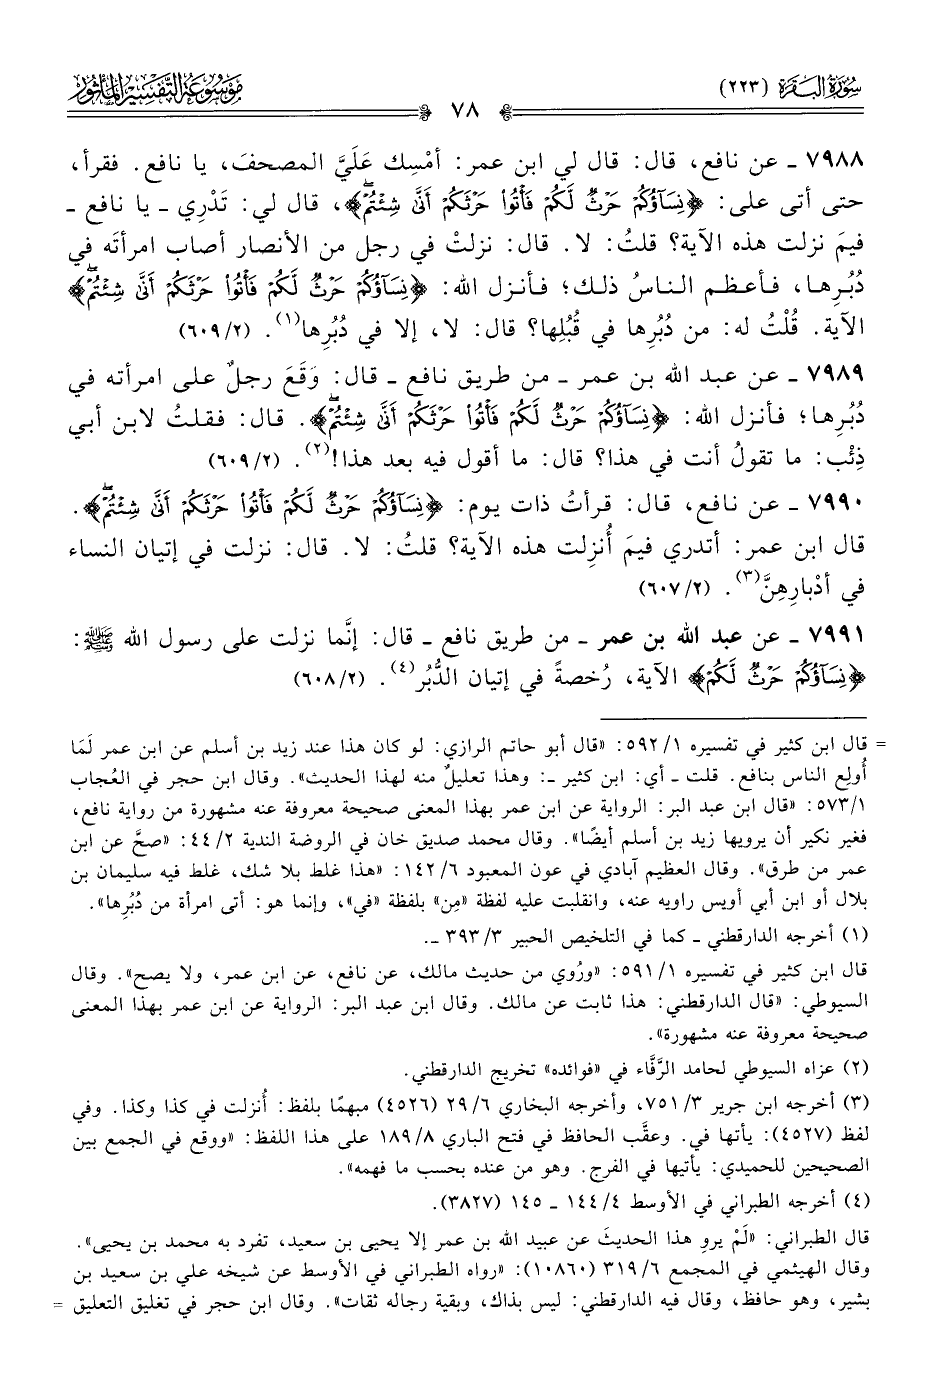 سُورَةُ البَقَرَة (٢٢٣)
٧٨
مَوْسُوعَة التَّفْسِيْر المَأْثُور
٧٩٨٨ ـ عن نافع، قال: قال لي ابن عمر: أمْسِك عَلَيَّ المصحفَ، يا نافع. فقرأ،
حتى أتى على: ﴿نِسَآؤُكُمْ حَرْثٌ لَّكُمْ فَأْتُوا۟ حَرْثَكُمْ أَنَّىٰ شِئْتُمْۖ﴾، قال لي: تَدْرِي ـ يا نافع ـ
فيمَ نزلت هذه الآية؟ قلتُ: لا. قال: نزلتْ في رجل من الأنصار أصاب امرأتَه في
دُبُرِها، فأعظم الناسُ ذلك؛ فأنزل الله: ﴿نِسَآؤُكُمْ حَرْثٌ لَّكُمْ فَأْتُوا۟ حَرْثَكُمْ أَنَّىٰ شِئْتُمْۖ﴾
الآية. قُلْتُ له: من دُبُرِها في قُبُلِها؟ قال: لا، إلا في دُبُرِها(١). (٦٠٩/٢)
٧٩٨٩ ـ عن عبد الله بن عمر ـ من طريق نافع ـ قال: وَقَعَ رجلٌ على امرأته في
دُبُرِها؛ فأنزل الله: ﴿نِسَآؤُكُمْ حَرْثٌ لَّكُمْ فَأْتُوا۟ حَرْثَكُمْ أَنَّىٰ شِئْتُمْۖ﴾. قال: فقلتُ لابن أبي
ذِئْب: ما تقولُ أنت في هذا؟ قال: ما أقول فيه بعد هذا!(٢). (٦٠٩/٢)
٧٩٩٠ ـ عن نافع، قال: قرأتُ ذات يوم: ﴿نِسَآؤُكُمْ حَرْثٌ لَّكُمْ فَأْتُوا۟ حَرْثَكُمْ أَنَّىٰ شِئْتُمْۖ﴾.
قال ابن عمر: أتدري فيمَ أُنزِلت هذه الآية؟ قلتُ: لا. قال: نزلت في إتيان النساء
في أدْبارِهِنَّ(٣). (٦٠٧/٢)
٧٩٩١ ـ عن عبد الله بن عمر ـ من طريق نافع ـ قال: إنَّما نزلت على رسول الله ﷺ:
﴿نِسَآؤُكُمْ حَرْثٌ لَّكُمْ﴾ الآية، رُخصةً في إتيان الدُّبُر(٤). (٦٠٨/٢)
= قال ابن كثير في تفسيره ٥٩٢/١: «قال أبو حاتم الرازي: لو كان هذا عند زيد بن أسلم عن ابن عمر لَمَا
أُولِع الناس بنافع. قلت ـ أي: ابن كثير ـ: وهذا تعليلٌ منه لهذا الحديث». وقال ابن حجر في العُجاب
٥٧٣/١: «قال ابن عبد البر: الرواية عن ابن عمر بهذا المعنى صحيحة معروفة عنه مشهورة من رواية نافع،
فغير نكير أن يرويها زيد بن أسلم أيضًا». وقال محمد صديق خان في الروضة الندية ٤٤/٢: «صحَّ عن ابن
عمر من طرق». وقال العظيم آبادي في عون المعبود ١٤٢/٦: «هذا غلط بلا شك، غلط فيه سليمان بن
بلال أو ابن أبي أويس راويه عنه، وانقلبت عليه لفظة «مِن» بلفظة «في»، وإنما هو: أتى امرأة من دُبُرِها».
(١) أخرجه الدارقطني ـ كما في التلخيص الحبير ٣٩٣/٣ ـ.
قال ابن كثير في تفسيره ٥٩١/١: «ورُوي من حديث مالك، عن نافع، عن ابن عمر، ولا يصح». وقال
السيوطي: «قال الدارقطني: هذا ثابت عن مالك. وقال ابن عبد البر: الرواية عن ابن عمر بهذا المعنى
صحيحة معروفة عنه مشهورة».
(٢) عزاه السيوطي لحامد الرَّفَّاء في «فوائده» تخريج الدارقطني.
(٣) أخرجه ابن جرير ٧٥١/٣، وأخرجه البخاري ٢٩/٦ (٤٥٢٦) مبهمًا بلفظ: أُنزلت في كذا وكذا. وفي
لفظ (٤٥٢٧): يأتها في. وعقَّب الحافظ في فتح الباري ١٨٩/٨ على هذا اللفظ: «ووقع في الجمع بين
الصحيحين للحميدي: يأتيها في الفرج. وهو من عنده بحسب ما فهمه».
(٤) أخرجه الطبراني في الأوسط ١٤٤/٤ ـ ١٤٥ (٣٨٢٧).
قال الطبراني: «لَمْ يروِ هذا الحديثَ عن عبيد الله بن عمر إلا يحيى بن سعيد، تفرد به محمد بن يحيى».
وقال الهيثمي في المجمع ٣١٩/٦ (١٠٨٦٠): «رواه الطبراني في الأوسط عن شيخه علي بن سعيد بن
بشير، وهو حافظ، وقال فيه الدارقطني: ليس بذاك، وبقية رجاله ثقات». وقال ابن حجر في تغليق التعليق =